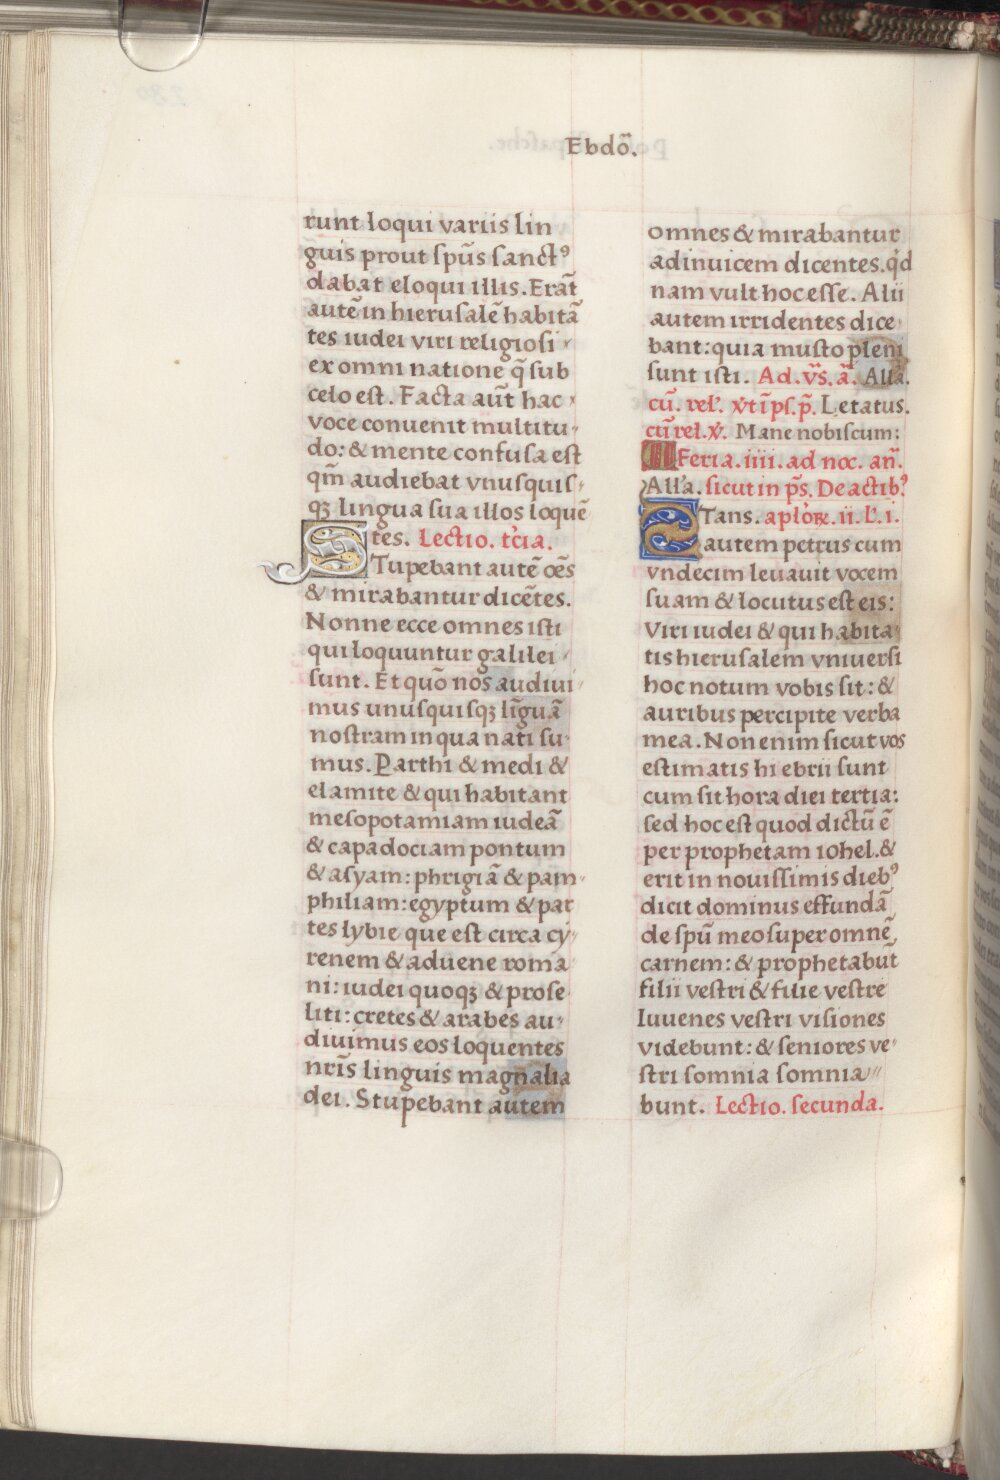 Ebdo᷈.
runt loqui variis lin
guis prout spūs sanctꝰ
dabat eloqui illis. Erāt
autē in hierusalē habitā
tes iudei viri religiosi
ex omni natione q̄ sub
celo est. Facta aūt hac
voce conuenit multitu
do: & mente confusa est
qm̄ audiebat vnusquis
qꝫ lingua sua illos loquē
tes. Lectio. tc̓ia.
Stupebant autē oēs
& mirabantur dicētes.
Nonne ecce omnes isti
qui loquuntur galilei
sunt. Et quō nos audiui
mus unusquisqꝫ linguā
nostram in qua nati su
mus. Parthi & medi &
elamite & qui habitant
mesopotamiam iudeā
& capadociam pontum
& asyam: phrigiā & pam
philiam: egyptum & par
tes lybie que est circa cy
renem & aduene roma
ni: iudei quoqꝫ & prose
liti: cretes & arabes au
diuimus eos loquentes
nr̄is linguis magnalia
dei. Stupebant autem
omnes & mirabantur
adinuicem dicentes. qd
nam vult hoc esse. Alii
autem irridentes dice
bant: quia musto pleni
sunt isti. Ad. v̄s. ā. All'a.
cū. rel'. v̓ tī ps. p̄. Letatus.
cū rel. v̓. Mane nobiscum:
Feria. iiii. ad noc. an̄.
All'a. sicut in p̄s. De actibꝰ
Stans. aplōꝝ. ii. l'. i.
autem petrus cum
vndecim leuauit vocem
suam & locutus est eis:
Viri iudei & qui habita
tis hierusalem vniuersi
hoc notum vobis sit: &
auribus percipite verba
mea. Non enim sicut vos
estimatis hi ebrii sunt
cum sit hora diei tertia:
sed hoc est quod dictū ē
per prophetam iohel. &
erit in nouissimis diebꝰ
dicit dominus effundā
de spū meo super omnē
carnem: & prophetabūt
filii vestri & filie vestre
Iuuenes vestri visiones
videbunt: & seniores ve
stri somnia somnia
bunt. Lectio. secunda.